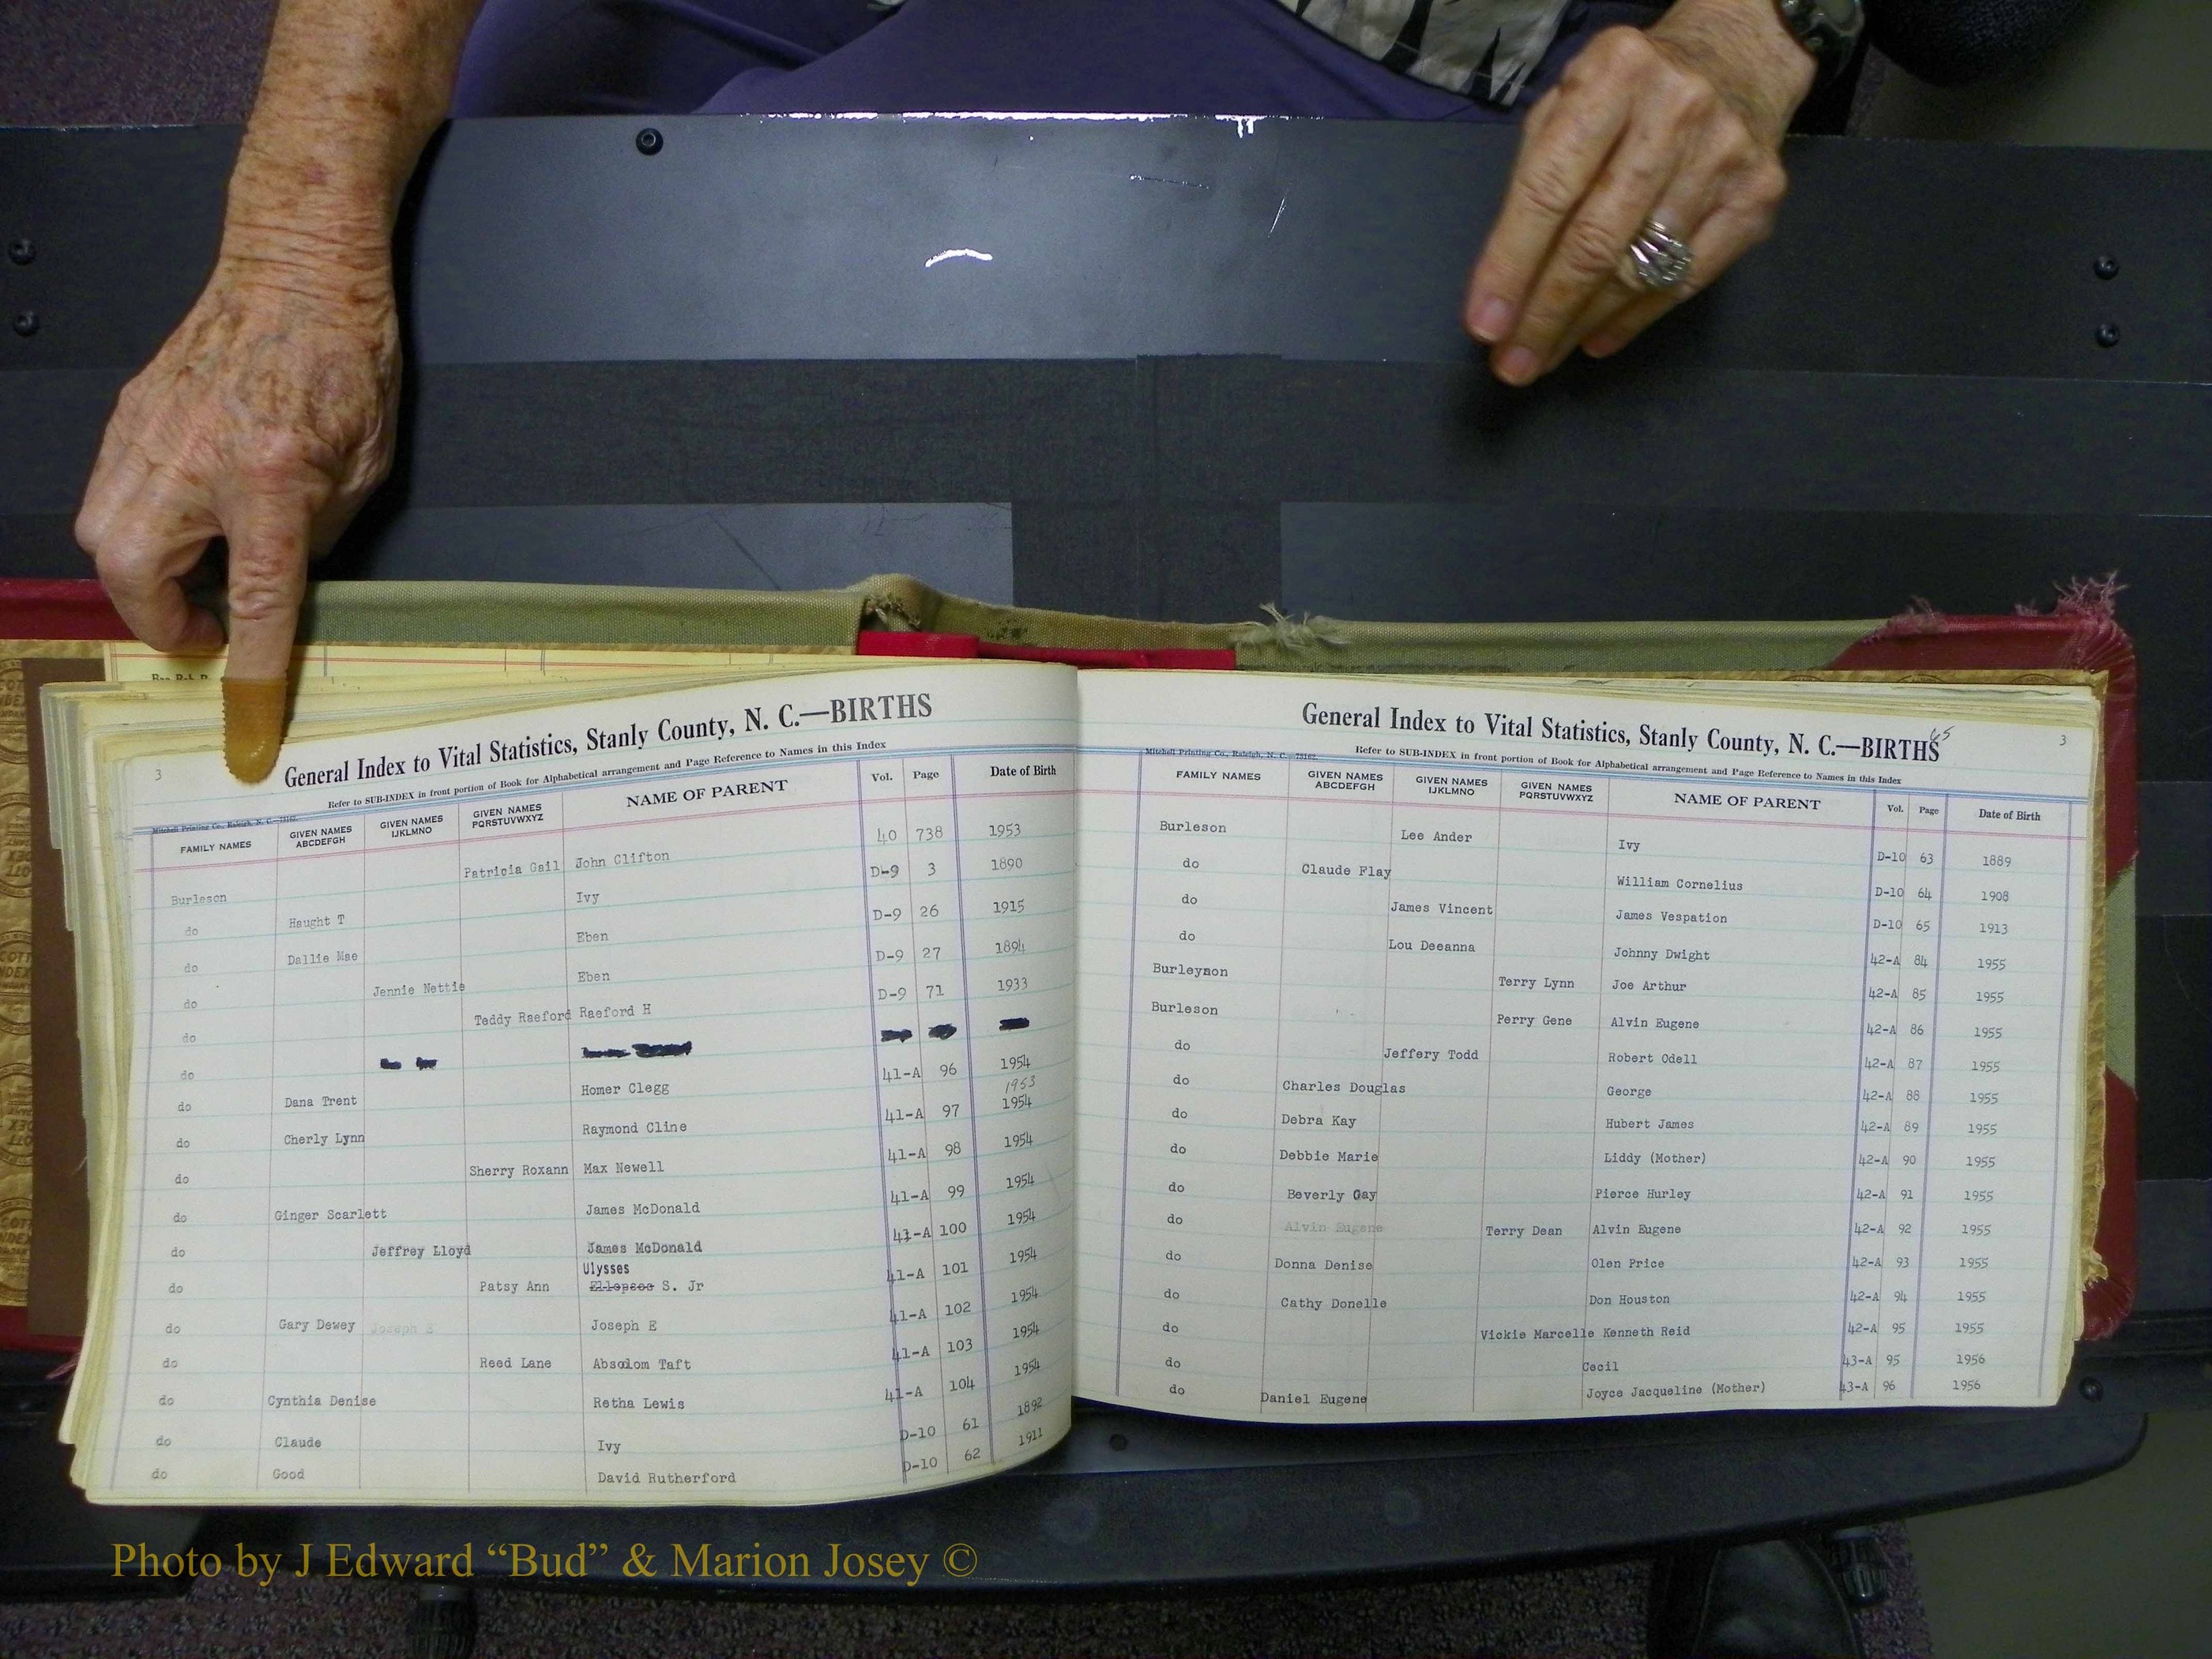 General Index to Vital Statistics, Stanly County, N. C.—BIRTHS
3
Refer to SUB-INDEX in front portion of Book for Alphabetical arrangement and Page Reference to Names in this Index
Mitchell Printing Co., Raleigh, N. C.
FAMILY NAMES GIVEN NAMES ABCDEFGH GIVEN NAMES IJKLMNO GIVEN NAMES PQRSTUVWXYZ NAME OF PARENT Vol. Page Date of Birth
Burleson Patricia Gail John Clifton 40 738 1953
do Haught T Ivy D-9 3 1890
do Dallie Mae Eben D-9 26 1915
do Jennie Nettie Eben D-9 27 1894
do Teddy Raeford Raeford H D-9 71 1933
do
do Dana Trent Homer Clegg 41-A 96 1954
1953
do Cherly Lynn Raymond Cline 41-A 97 1954
do Sherry Roxann Max Newell 41-A 98 1954
do Ginger Scarlett James McDonald 41-A 99 1954
do Jeffrey Lloyd James McDonald 41-A 100 1954
Ulysses
do Patsy Ann S. Jr 41-A 101 1954
do Gary Dewey Joseph E Joseph E 41-A 102 1954
do Reed Lane Absolom Taft 41-A 103 1954
do Cynthia Denise Retha Lewis 41-A 104 1954
do Claude Ivy D-10 61 1892
do Good David Rutherford D-10 62 1911
General Index to Vital Statistics, Stanly County, N. C.—BIRTHS
65
3
Mitchell Printing Co., Raleigh, N. C. 75162
Refer to SUB-INDEX in front portion of Book for Alphabetical arrangement and Page Reference to Names in this Index
FAMILY NAMES GIVEN NAMES ABCDEFGH GIVEN NAMES IJKLMNO GIVEN NAMES PQRSTUVWXYZ NAME OF PARENT Vol. Page Date of Birth
Burleson Lee Ander Ivy D-10 63 1889
do Claude Flay William Cornelius D-10 64 1908
do James Vincent James Vespation D-10 65 1913
do Lou Deeanna Johnny Dwight 42-A 84 1955
Burleyson Terry Lynn Joe Arthur 42-A 85 1955
Burleson Perry Gene Alvin Eugene 42-A 86 1955
do Jeffery Todd Robert Odell 42-A 87 1955
do Charles Douglas George 42-A 88 1955
do Debra Kay Hubert James 42-A 89 1955
do Debbie Marie Liddy (Mother) 42-A 90 1955
do Beverly Gay Pierce Hurley 42-A 91 1955
do Alvin Eugene Terry Dean Alvin Eugene 42-A 92 1955
do Donna Denise Olen Price 42-A 93 1955
do Cathy Donelle Don Houston 42-A 94 1955
do Vickie Marcelle Kenneth Reid 42-A 95 1955
do Cecil 43-A 95 1956
do Daniel Eugene Joyce Jacqueline (Mother) 43-A 96 1956
Photo by J Edward “Bud” & Marion Josey ©